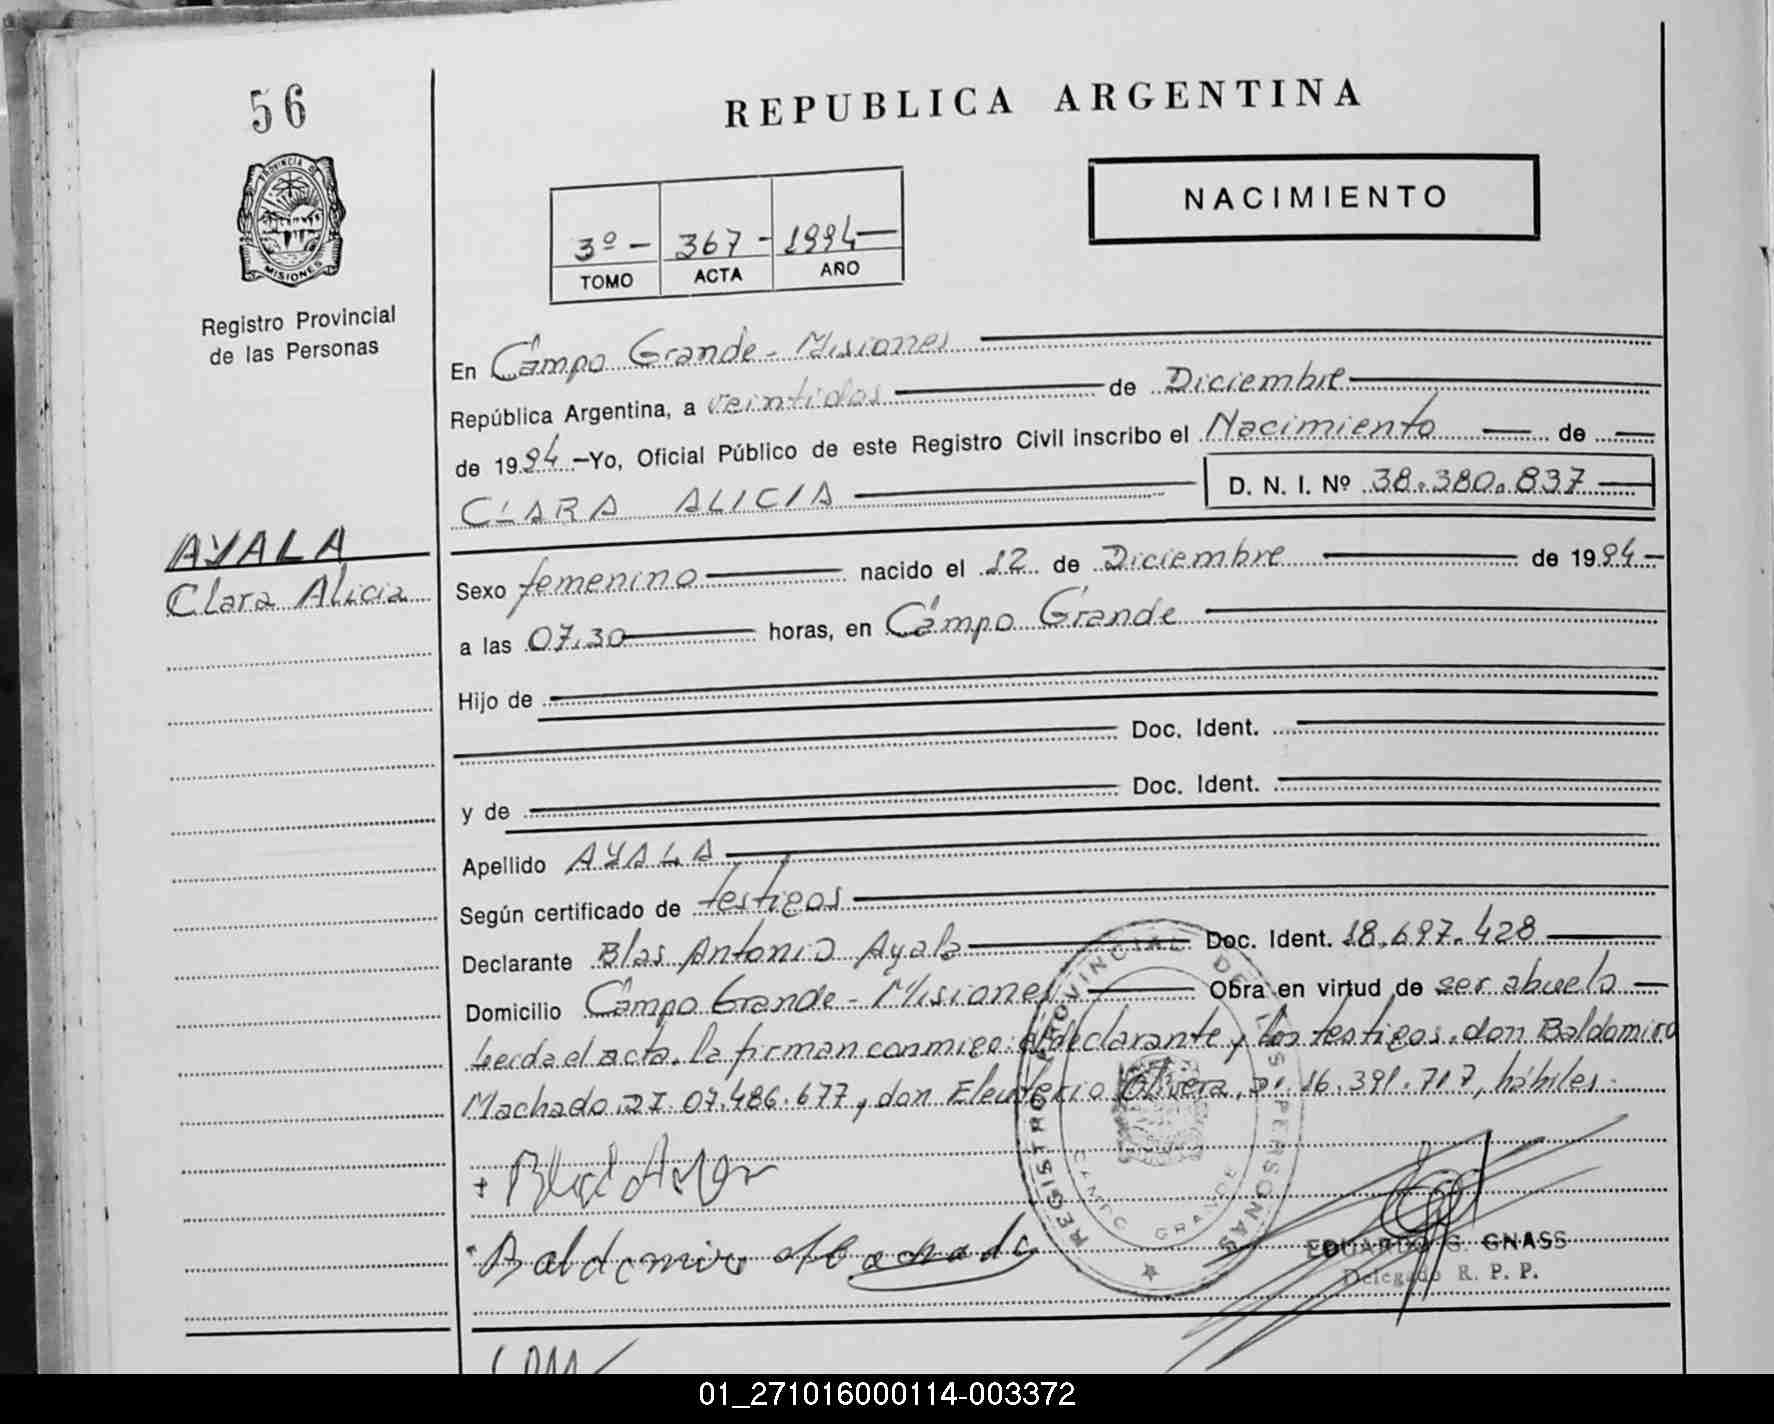 56
PROVINCIA DE
MISIONES
Registro Provincial
de las Personas
AYALA
Clara Alicia
REPUBLICA ARGENTINA
NACIMIENTO
3º - 367 - 1994
TOMO ACTA AÑO
En Campo Grande - Misiones
República Argentina, a veintidos de Diciembre
de 1994 -Yo, Oficial Público de este Registro Civil inscribo el Nacimiento de
CLARA ALICIA D. N. I. Nº 38.380.837
Sexo femenino nacido el 12 de Diciembre de 1994
a las 07.30 horas, en Campo Grande
Hijo de
Doc. Ident.
y de Doc. Ident.
Apellido AYALA
Según certificado de testigos
Declarante Blas Antonio Ayala Doc. Ident. 18.697.428
Domicilio Campo Grande - Misiones Obra en virtud de ser abuelo
Leida el acta, la firman conmigo: el declarante y los testigos, don Baldomiro
Machado DI. 07.486.677, don Eleuterio Olivera, DI. 16.391.717, hábiles.
REGISTRO PROVINCIAL DE LAS PERSONAS
CAMPO GRANDE
Baldomiro Machado
EDUARDO G. GNASS
Delegado R. P. P.
01_271016000114-003372